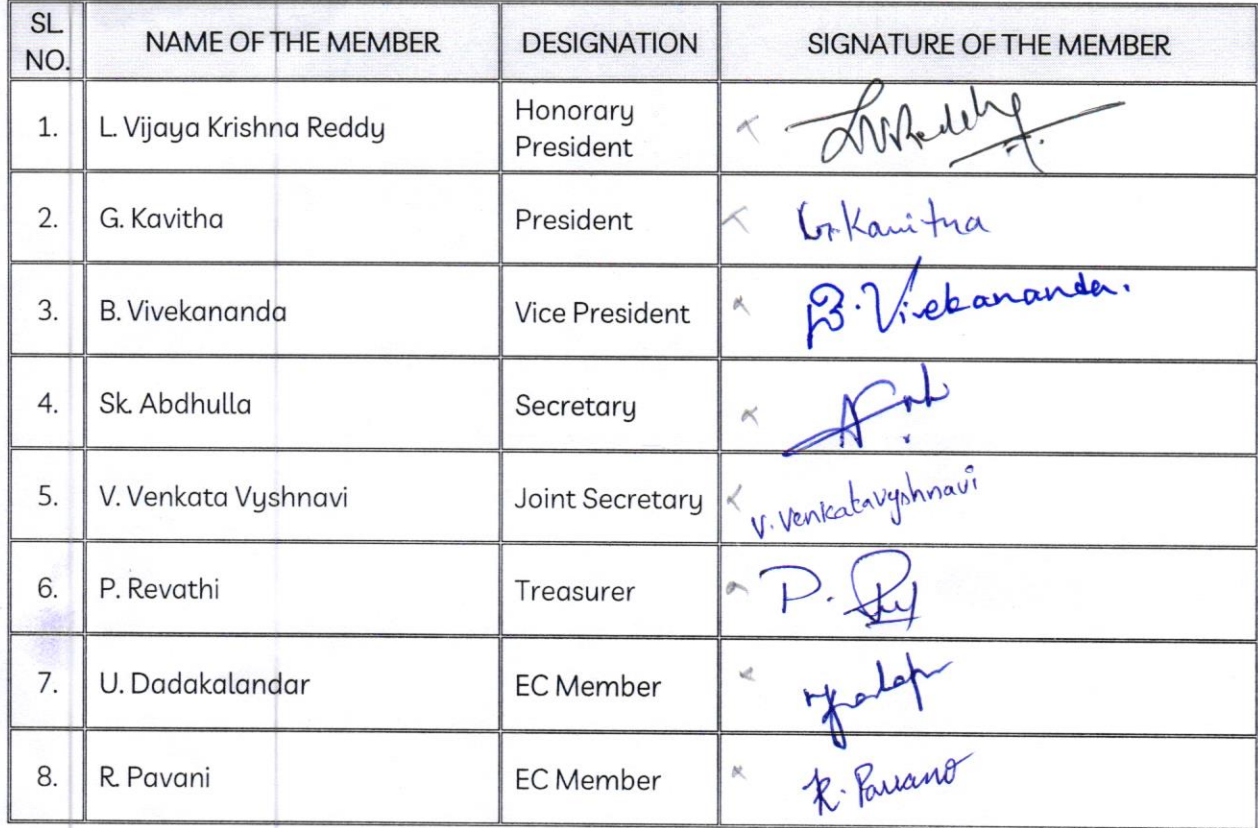 SL. NO. NAME OF THE MEMBER DESIGNATION SIGNATURE OF THE MEMBER
1. L. Vijaya Krishna Reddy Honorary President LVReddy
2. G. Kavitha President G. Kavitha
3. B. Vivekananda Vice President B. Vivekananda.
4. Sk. Abdhulla Secretary
5. V. Venkata Vyshnavi Joint Secretary V. Venkatavyshnavi
6. P. Revathi Treasurer P.
7. U. Dadakalandar EC Member
8. R. Pavani EC Member R. Pavani